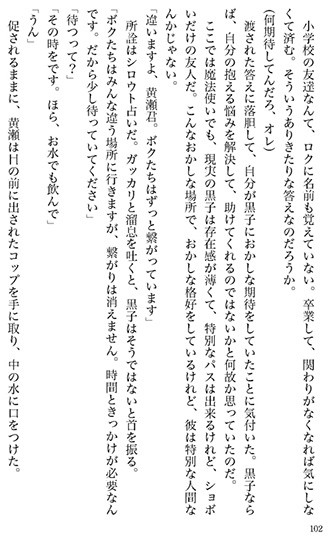 小学校の友達なんて、ロクに名前も覚えていない。卒業して、関わりがなくなれば気にしな
くて済む。そういうありきたりな答えなのだろうか。
(何期待してんだろ、オレ)
渡された答えに落胆して、自分が黒子におかしな期待をしていたことに気付いた。黒子なら
ば、自分の抱える悩みを解決して、助けてくれるのではないかと何故か思っていたのだ。
ここでは魔法使いでも、現実の黒子は存在感が薄くて、特別なパスは出来るけれど、ショボ
いだけの友人だ。こんなおかしな場所で、おかしな格好をしているけれど、彼は特別な人間な
んかじゃない。
「違いますよ、黄瀬君。ボクたちはずっと繋がっています」
所詮はシロウト占いだ。ガッカリと溜息を吐くと、黒子はそうではないと首を振る。
「ボクたちはみんな違う場所に行きますが、繋がりは消えません。時間ときっかけが必要なん
です。だから少し待っていてください」
「待つって?」
「その時をです。ほら、お水でも飲んで」
「うん」
促されるままに、黄瀬は目の前に出されたコップを手に取り、中の水に口をつけた。
102